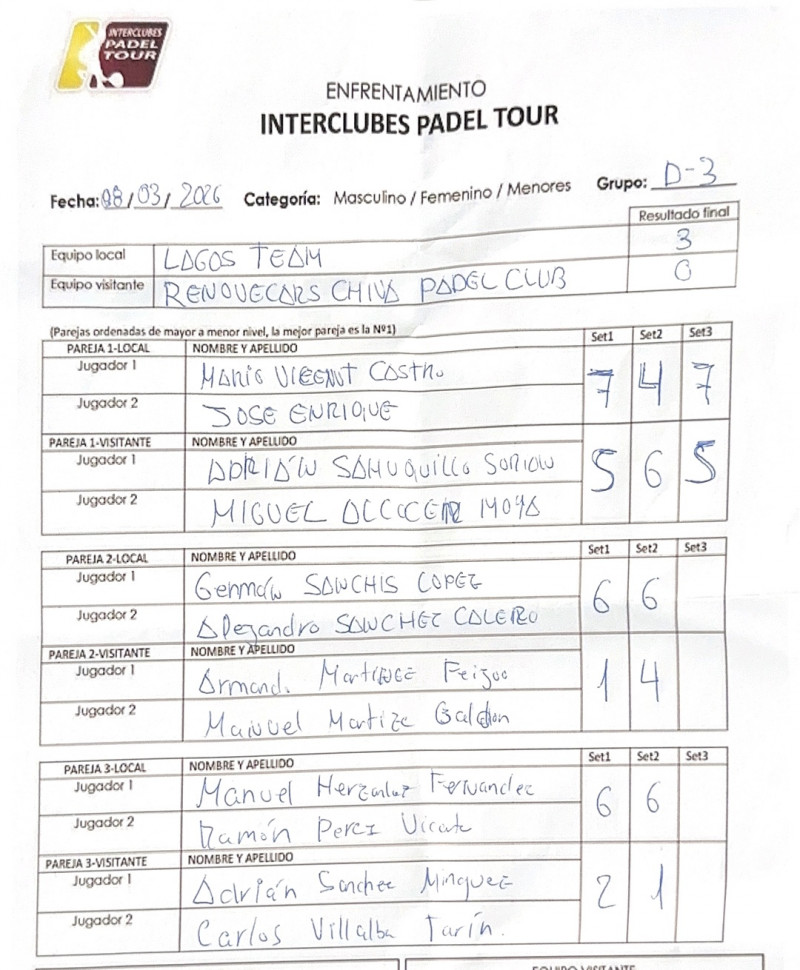 INTERCLUBES
PADEL
TOUR
ENFRENTAMIENTO
INTERCLUBES PADEL TOUR
Fecha: 08/03/2026 Categoría: Masculino / Femenino / Menores Grupo: D-3
Resultado final
Equipo local LAGOS TEAM 3
Equipo visitante RENOVECARS CHIVA PADEL CLUB 0
(Parejas ordenadas de mayor a menor nivel, la mejor pareja es la Nº1)
PAREJA 1-LOCAL NOMBRE Y APELLIDO Set1 Set2 Set3
Jugador 1 Mario Castro 7 4 7
Jugador 2 JOSE ENRIQUE
PAREJA 1-VISITANTE NOMBRE Y APELLIDO
Jugador 1 ADRIÁN SAHUQUILLO SORIANO 5 6 5
Jugador 2 MIGUEL MOYA
PAREJA 2-LOCAL NOMBRE Y APELLIDO Set1 Set2 Set3
Jugador 1 Germán SANCHIS LOPEZ 6 6
Jugador 2 Alejandro SANCHEZ CALERO
PAREJA 2-VISITANTE NOMBRE Y APELLIDO
Jugador 1 Armand. Feijoo 1 4
Jugador 2 Manuel Galdon
PAREJA 3-LOCAL NOMBRE Y APELLIDO Set1 Set2 Set3
Jugador 1 Manuel Fernandez 6 6
Jugador 2 Ramón Perez Vicente
PAREJA 3-VISITANTE NOMBRE Y APELLIDO
Jugador 1 Adrián Sanchez Minguez 2 1
Jugador 2 Carlos Villalba Tarín.
EQUIPO VISITANTE